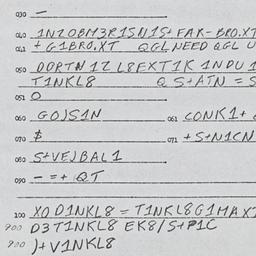 030 —
040 1NZOBM3R1SN1S+ FAK-BRO.XT
041 + G1BRO.XT QGL NEED QGL U
050 DORTN 1Z L8EXT1K 1NDU1
T1NKL8 Q S+ATN = S
051 O
060 GO)S1N 061 CONK1+
070 $ 071 +S+N1CN
080 S+VE)BAL1
090 - = + QT
100 XO D1NKL8 = T1NKL8G1MAXT
900 D3T1NKL8 EK8/S+P1C
900 )+V1NKL8